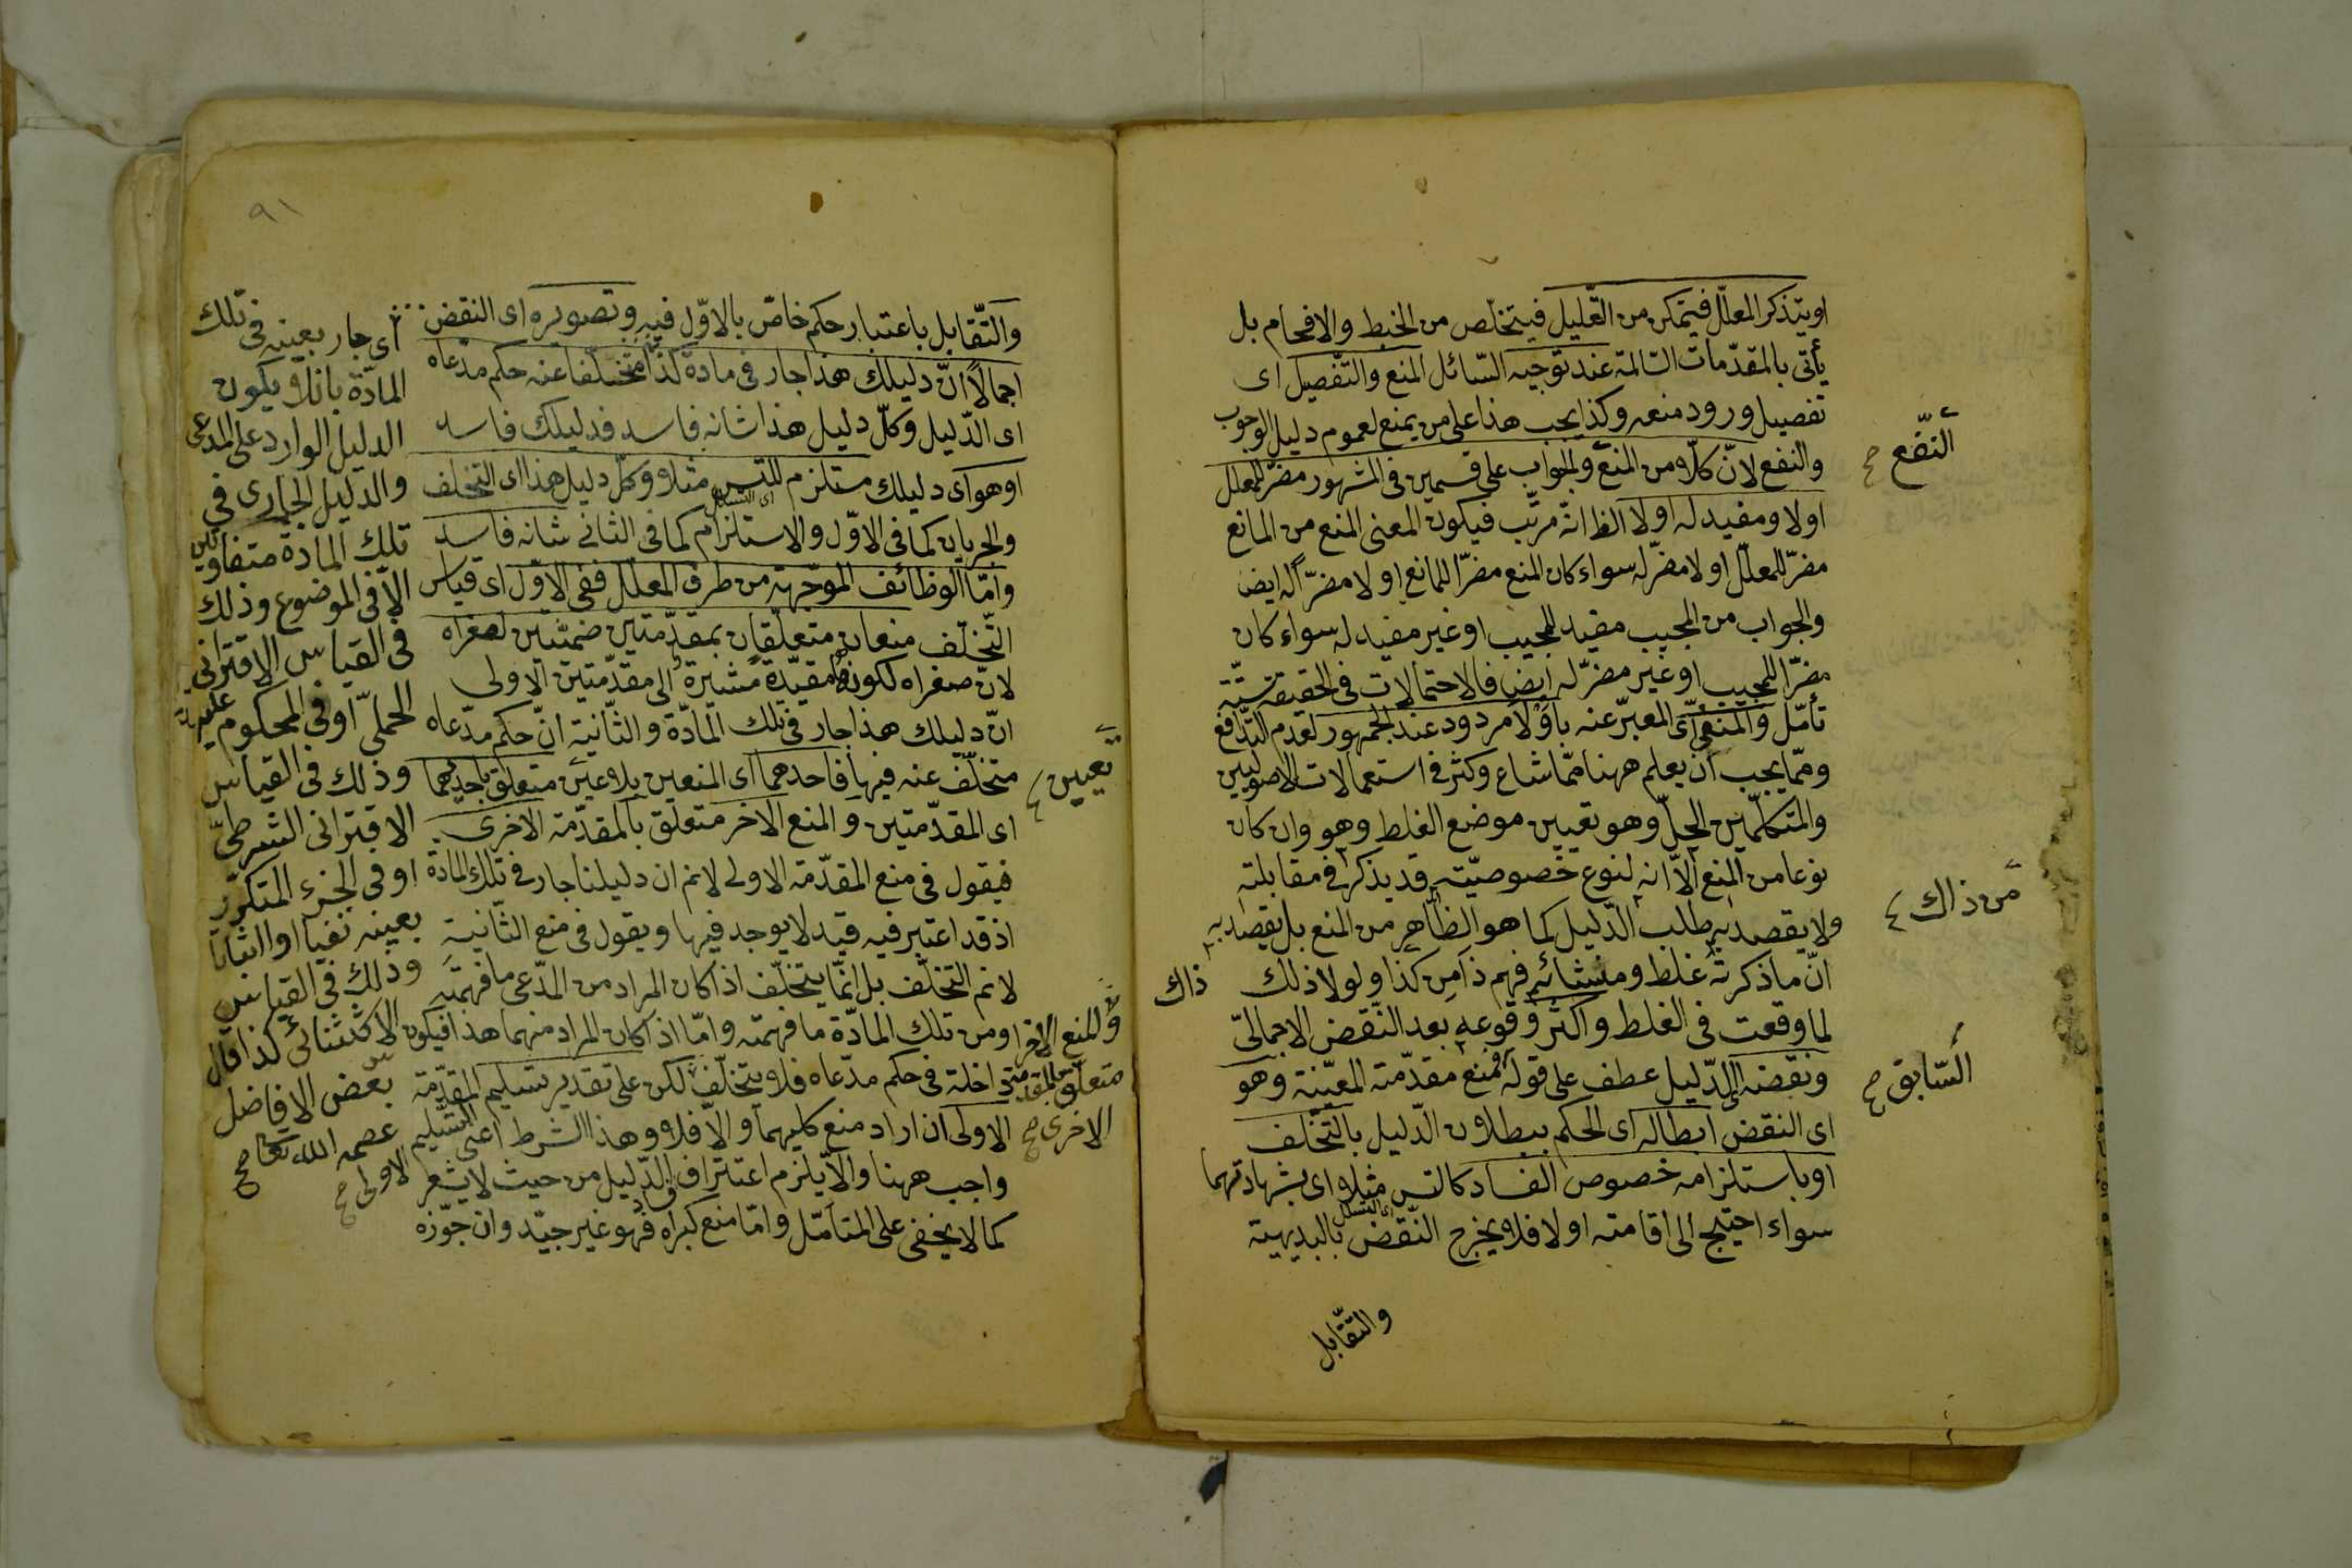 او يتذكر المعلّل فيتمكن من التّعليل فيتخلّص من الخبط والافحام بل
يأتى بالمقدّمات السّالمة عند توجيه السّائل المنع والتّفصيل اى
تفصيل ورود منعه وكذا يجب هذا على من يمنع لعموم دليل الوجوب
والنفع لانّ كلّا من المنع والجواب على قسمين فى المشهور مضرّ للمعلل
اولا ومفيد له اولا الظ انّه مرتّب فيكون المعنى المنع من المانع
مضرّ للمعلّل او لا مضرّ له سواء كان المنع مضرّا للمانع او لا مضرّا له ايضا
والجواب من المجيب مفيد للمجيب او غير مفيد له سواء كان
مضرّا للمجيب او غير مضرّ له ايضا فالاحتمالات فى الحقيقة ستّة
تأمّل والمنفىّ اى المعبّر عنه باولا مردود عند الجمهور لعدم التّدافع
وممّا يجب ان يعلم ههنا ممّا شاع وكثر فى استعمالات الاصوليين
والمتكلّمين الحلّ وهو تعيين موضع الغلط وهو وان كان
نوعا من المنع الّا انه لنوع خصوصيّته قد يذكر فى مقابلته
ولا يقصد به طلب الدّليل كما هو الظّاهر من المنع بل يقصد به
انّ ما ذكرته غلط ومنشائه فهم ذا من كذا ولولا ذلك
لما وقعت فى الغلط واكثر وقوعه بعد النّقض الاجمالىّ
ونقضه الدّليل عطف على قوله فمنع مقدّمته المعيّنة وهو
اى النقض ابطاله اى الحكم ببطلان الدّليل بالتّخلّف
او باستلزامه خصوص الفساد كالتس مثلا اى بشهادتهما
اى التسلسل
سواء احتيج الى اقامته اولا فلا يخرج النّقض بالبديهية
والتّقابل
النّفع صح
من ذاك
ذاك
السّابق صح
٩١
والتّقابل باعتبار حكم خاصّ بالاوّل فيه وتصويره اى النقض
اجمالا انّ دليلك هذا جار فى مادة كذا متخلّفا عنه حكم مدّعاه
اى الدّليل وكلّ دليل هذا شانه فاسد فدليلك فاسد
او هو اى دليلك مستلزم للتس مثلا وكلّ دليل هذا اى التخلف
اى التسلسل
والجريان كما فى الاوّل والاستلزام كما فى الثانى شانه فاسد
وامّا الوظائف الموجّهة من طرف المعلّل ففى الاوّل اى قياس
التّخلّف منعان متعلّقان بمقدّمتين ضمنيّتين لصغراه
لانّ صغراه لكونها مقيّدة مشيرة الى مقدّمتين الاولى
انّ دليلك هذا جار فى تلك المادّة والثّانية انّ حكم مدّعاه
متخلّف عنه فيها فاحدهما اى المنعين بلا عين متعلّق باحديهما
اى المقدّمتين والمنع الاخر متعلّق بالمقدّمة الاخرى
فيقول فى منع المقدّمة الاولى لانم ان دليلنا جار فى تلك المادة
اذ قد اعتبر فيه قيد لا يوجد فيها ويقول فى منع الثّانية
لانم التخلّف بل انّما يتخلّف اذا كان المراد من المدّعى ما فهمته
ومن تلك المادّة ما فهمته وامّا اذا كان المراد منهما هذا فيكون
داخلة فى حكم مدّعاه فلا يتخلّف لكن على تقدير تسليم المقدّمة
الاولى ان اراد منع كليهما والّا فلا وهذا الشرط اعنى التّسليم
واجب ههنا والّا يلزم اعتراف الدّليل من حيث لا يشعر
كما لا يخفى على المتأمّل وامّا منع كبراه فهو غير جيّد وان جوّزه
تعيين
والمنع الاخر
متعلّق بالمقدمة
الاخرى صح
الاولى صح
اى جار بعينه فى تلك
المادّة بان لا يكون
الدليل الوارد على المدعى
والدليل الجارى فى
تلك المادة متفاوتين
الّا فى الموضوع وذلك
فى القياس الاقترانى
الحملىّ او فى المحكوم عليه
وذلك فى القياس
الاقترانى الشرطىّ
او فى الجزء المتكرّر
بعينه نفيا او اثباتا
وذلك فى القياس
الاستثنائى كذا قال
بعض الافاضل
عصمه الله تعالى صح